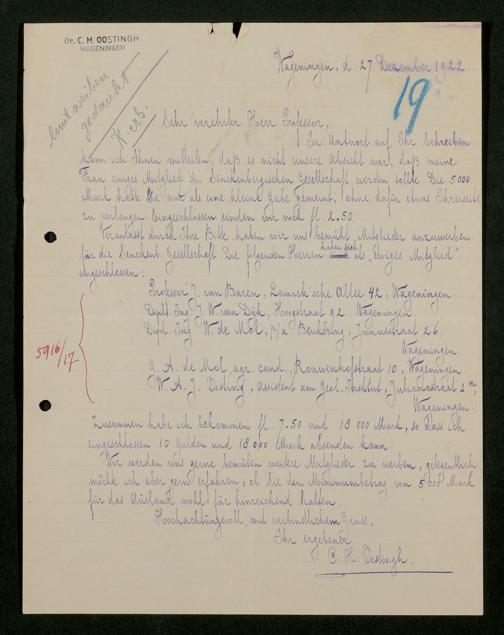 Dr. C. H. OOSTINGH
WAGENINGEN
Wageningen, d. 27 Dezember 1922
19
gedankt
Sehr verehrter Herr Professor,
In Antwort auf Ihr Schreiben
kann ich Ihnen mitteilen, daß es nicht unsere Absicht war, daß meine
Frau ewiges Mitglied der Senckenbergischen Gesellschaft werden sollte. Die 5000
Mark hatte sie nur als eine kleine Gabe gemeint, ohne dafür etwas Ihrerseits
zu verlangen. Eingeschlossen senden wir noch fl 2.50.
Veranlasst durch Ihre Bitte haben wir uns bemüht, Mitglieder anzuwerben
für die Senckenb. Gesellschaft. Die folgenden Herren haben sich als „Ewiges Mitglied"
angeschlossen:
Professor J. van Baren, Lawick'sche Allee 42, Wageningen.
Dipl. Ing. J. W. van Dijk, Hoogstraat 92, Wageningen.
Dipl. Ing. W. de Mol, p/a Beukering, Junusstraat 26,
Wageningen.
5916/17
G. A. de Mol, agr. cand., Rouwenhofstraat 10, Wageningen.
W. A. J. Oosting, assistent am Geol. Institut, Julianastraat 1a,
Wageningen.
Zusammen habe ich bekommen fl. 7.50 und 18 000 Mark, so dass ich
eingeschlossen 10 Gulden und 18 000 Mark absenden kann.
Wir werden uns gerne bemühen weitere Mitglieder zu werben, gelegentlich
möchte ich aber gern erfahren, ob Sie den Minimumbetrag von 5000 Mark
für das Ausland wohl für hinreichend halten.
Hochachtungsvoll, mit verbindlichem Gruss,
Ihr ergebener
C. H. Oostingh.